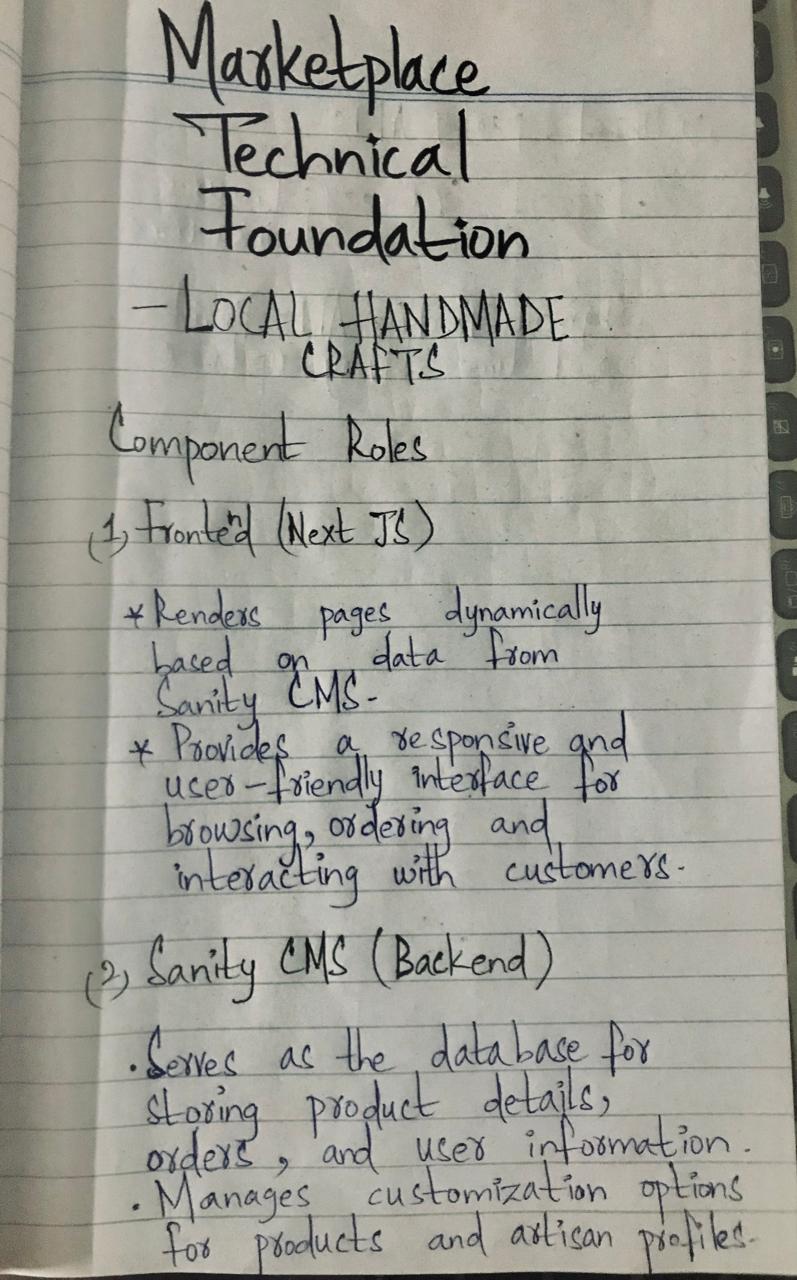 Marketplace
Technical
Foundation
- LOCAL HANDMADE
CRAFTS
Component Roles
(1) Frontend (Next JS)
* Renders pages dynamically
based on data from
Sanity CMS.
* Provides a responsive and
user-friendly interface for
browsing, ordering and
interacting with customers.
(2) Sanity CMS (Backend)
. Serves as the database for
storing product details,
orders, and user information.
. Manages customization options
for products and artisan profiles.